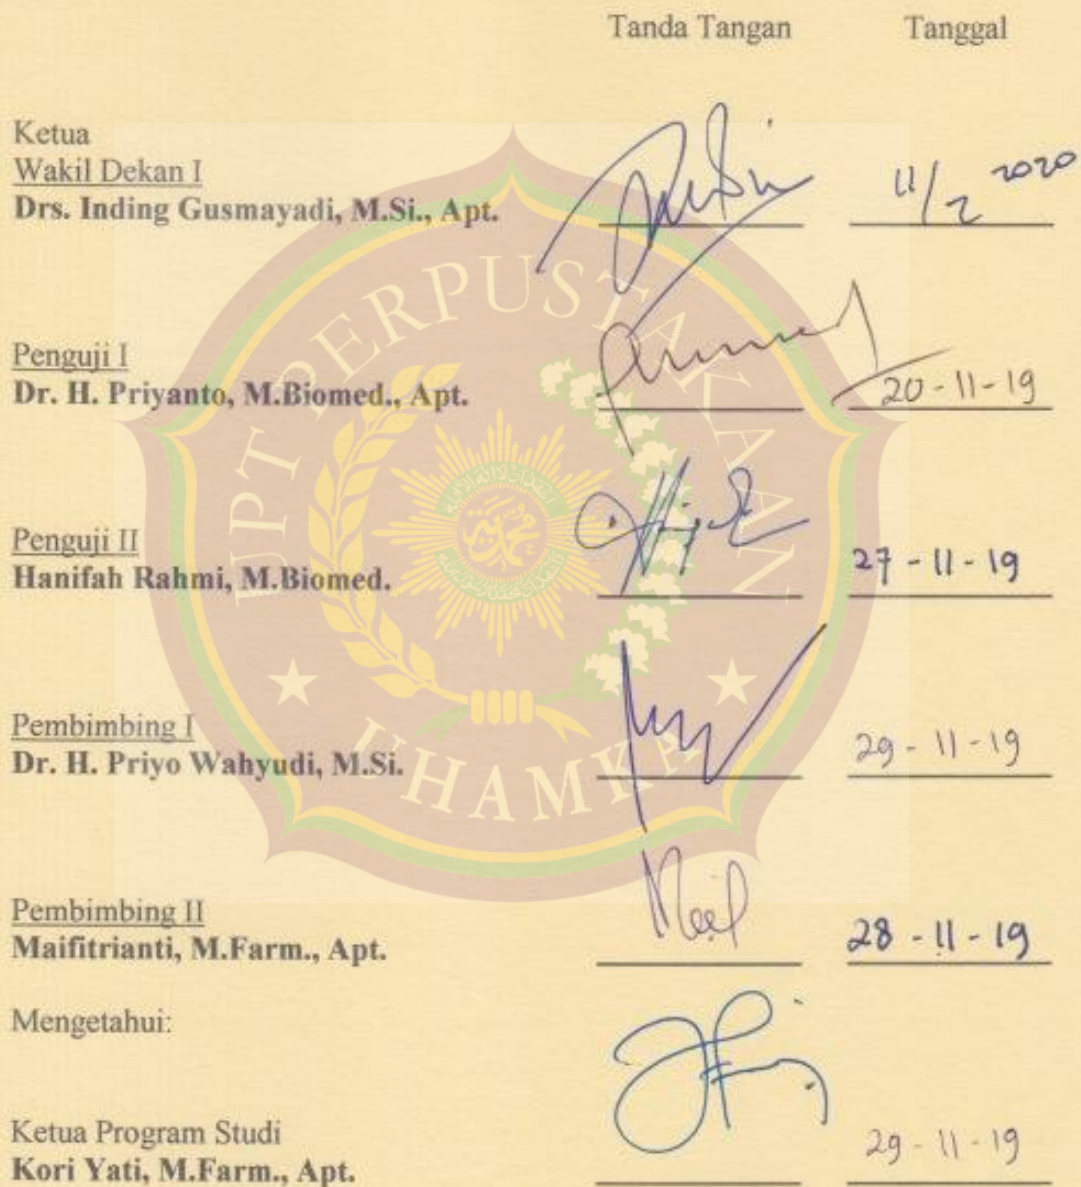 Tanda Tangan Tanggal
Ketua
Wakil Dekan I
Drs. Inding Gusmayadi, M.Si., Apt. 11/2 2020
Penguji I
Dr. H. Priyanto, M.Biomed., Apt. 20-11-19
Penguji II
Hanifah Rahmi, M.Biomed. 27-11-19
Pembimbing I
Dr. H. Priyo Wahyudi, M.Si. 29-11-19
Pembimbing II
Maifitrianti, M.Farm., Apt. 28-11-19
Mengetahui:
Ketua Program Studi
Kori Yati, M.Farm., Apt. 29-11-19
UPT PERPUSTAKAAN
UHAMKA